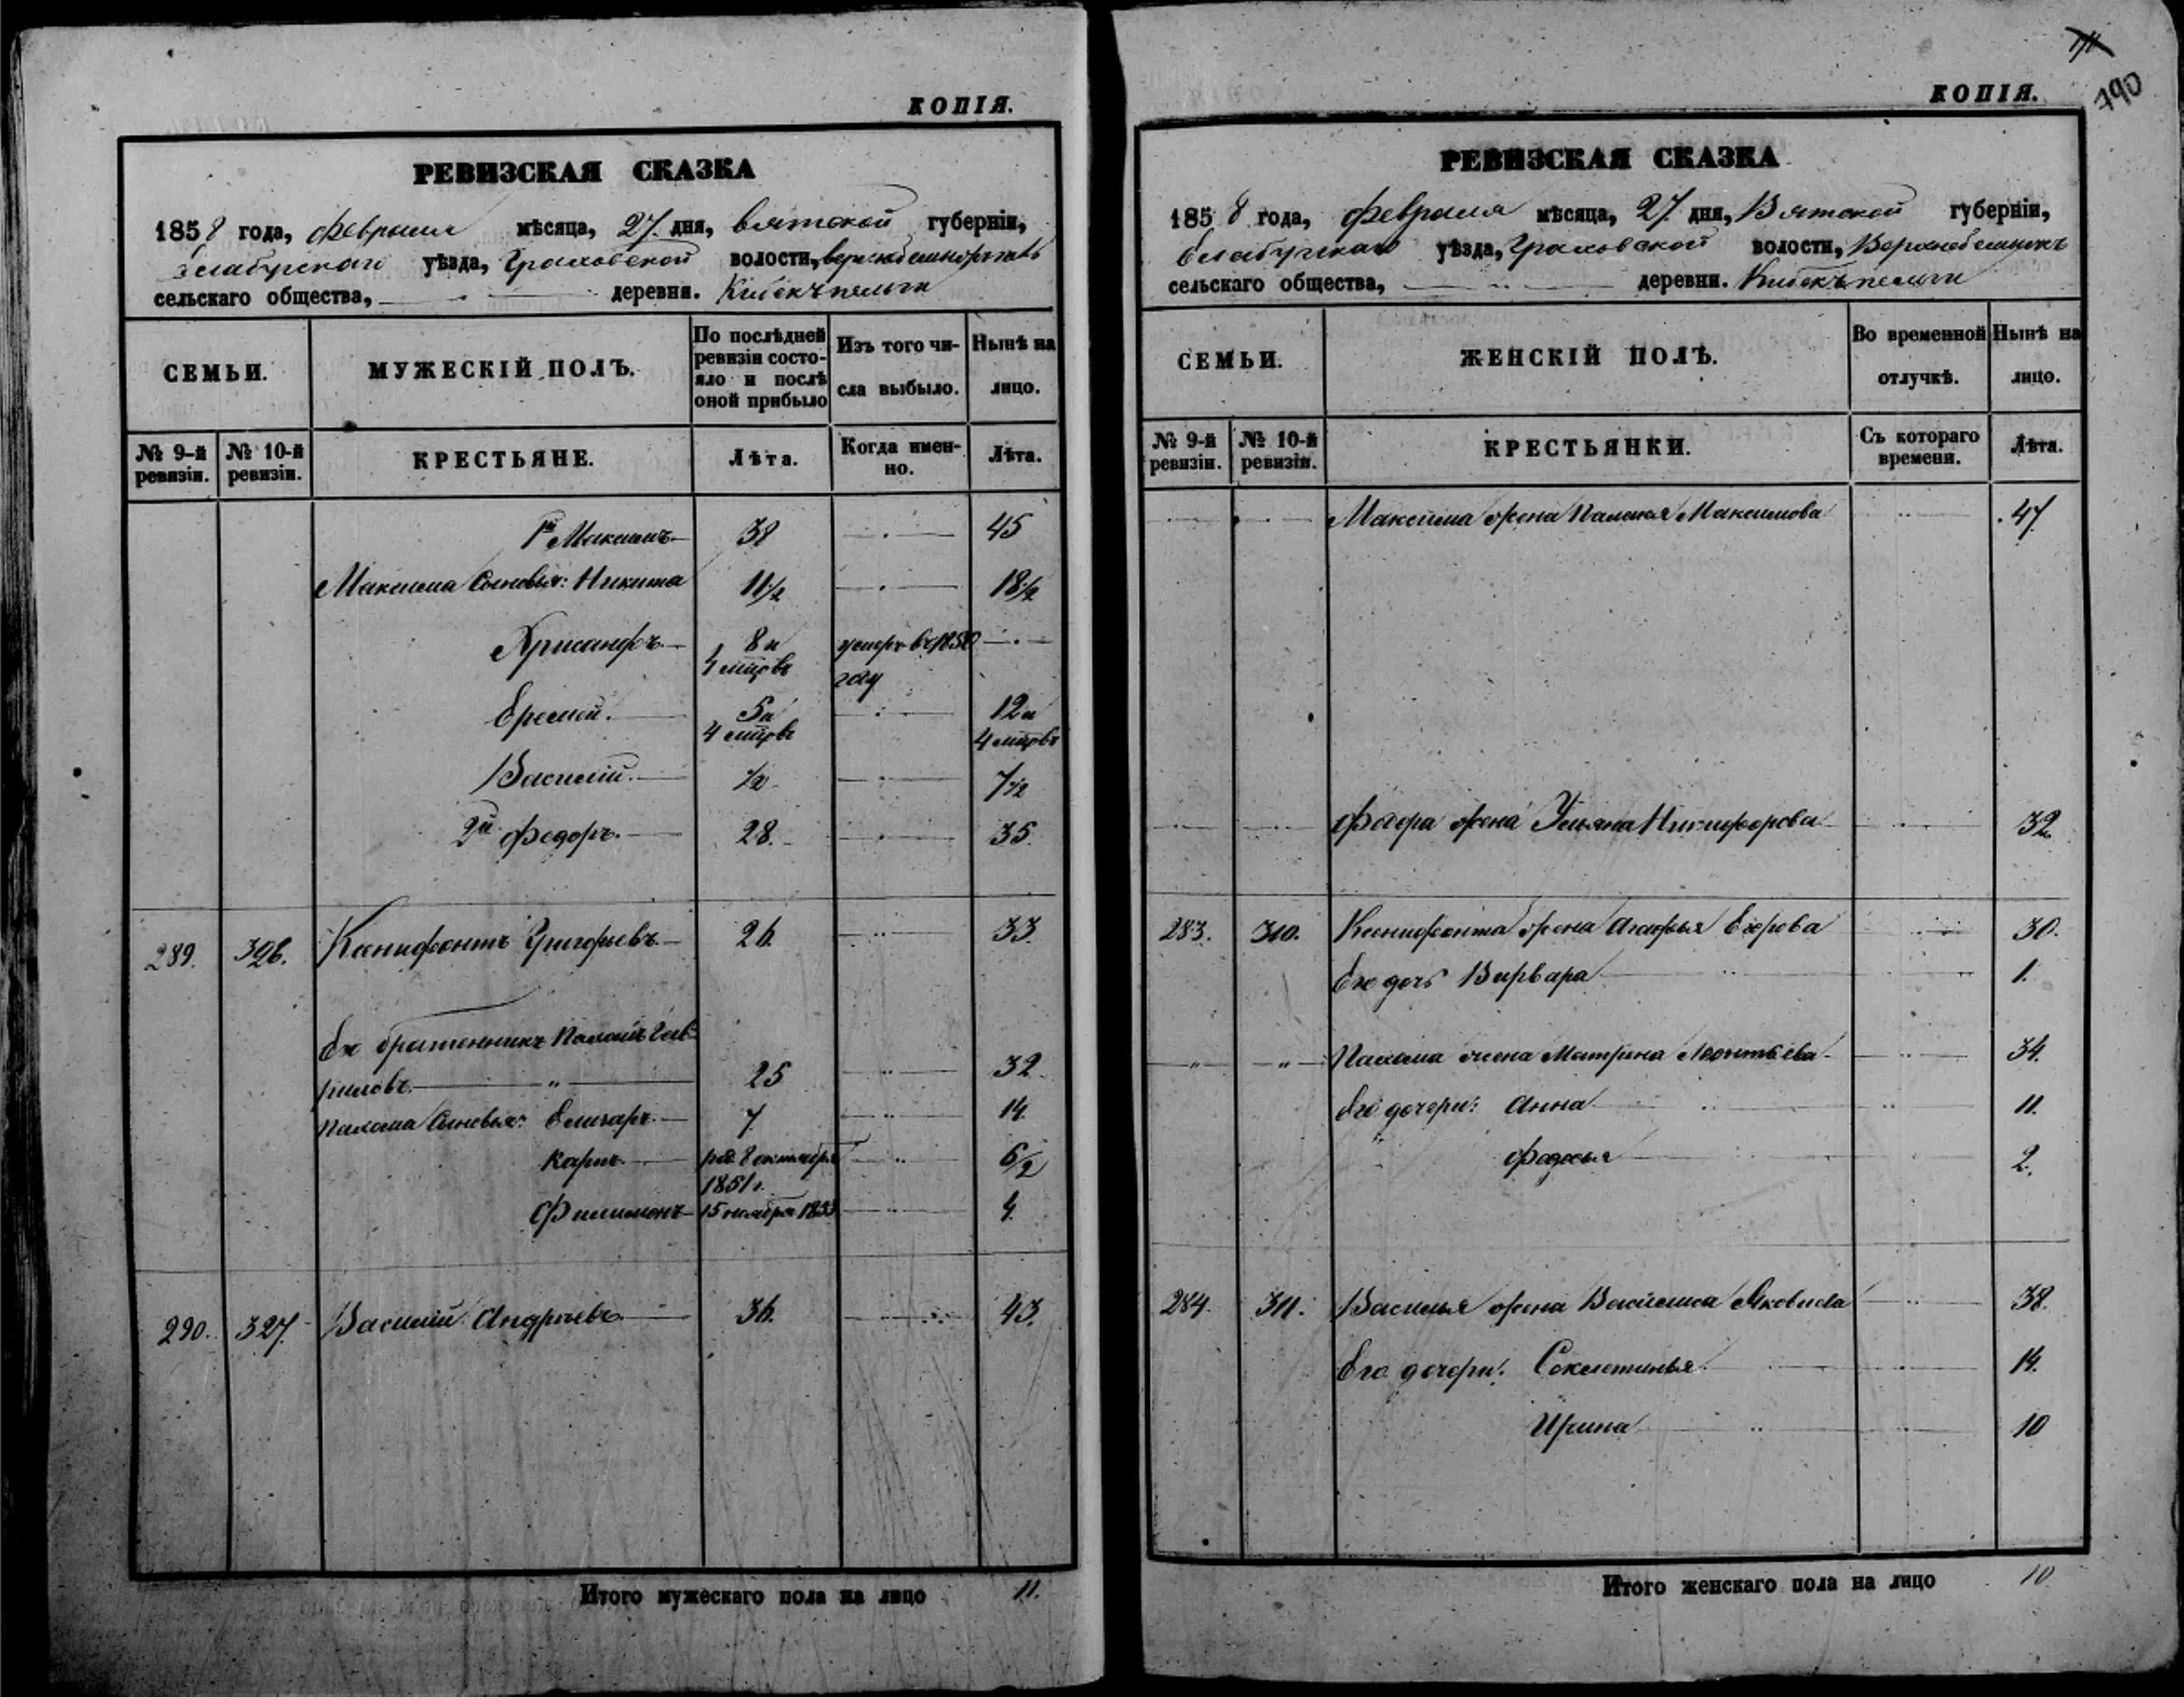 КОПІЯ.
РЕВИЗСКАЯ СКАЗКА
1858 года, февраля мѣсяца, 27 дня, Вятской губерніи,
Елабускаго уѣзда, Граховской волости,
сельскаго общества, деревни.
СЕМЬИ. МУЖЕСКІЙ ПОЛЪ. По послѣдней ревизіи состояло и послѣ оной прибыло Изъ того числа выбыло. Нынѣ на лицо.
№ 9-й ревизіи. № 10-й ревизіи. КРЕСТЬЯНЕ. Лѣта. Когда именно. Лѣта.
1й Максимъ 38 45
Максима сыновья: Никита 11½ 18½
Хрисанфъ 8 и 4 мцовъ умеръ въ 1850 году
Еремей. 5 и 4 мцовъ 12 и 4 мцовъ
Василій. ½ 7½
2й Федоръ. 28. 35.
289. 326. Ксенифонтъ Григорьевъ 26. 33.
Его братенникъ Палами Гав-
риловъ. 25 32.
сыновья: Елизаръ. 7 14.
Карпъ. род. 8 октября 1851 г. 6½
Филимонъ 15 ноября 1853 4.
290. 327. Василій Андреевъ 36. 43.
Итого мужескаго пола на лицо 11.
КОПІЯ.
790
РЕВИЗСКАЯ СКАЗКА
1858 года, февраля мѣсяца, 27 дня, Вятской губерніи,
Елабускаго уѣзда, Граховской волости,
сельскаго общества, деревни.
СЕМЬИ. ЖЕНСКІЙ ПОЛЪ. Во временной отлучкѣ. Нынѣ на лицо.
№ 9-й ревизіи. № 10-й ревизіи. КРЕСТЬЯНКИ. Съ котораго времени. Лѣта.
Максима жена Максимова 47.
жена Ульяна Никифорова 32
283. 310. Ксенифонта жена Агафья Егорова 30.
Его дочь Варвара 1.
жена Матрена Леонтьева 34.
Его дочери: Анна 11.
Федосья 2.
284. 311. Василья жена Василиса Яковлева 38.
Его дочери: Секлетинья 14.
Ирина 10
Итого женскаго пола на лицо 10